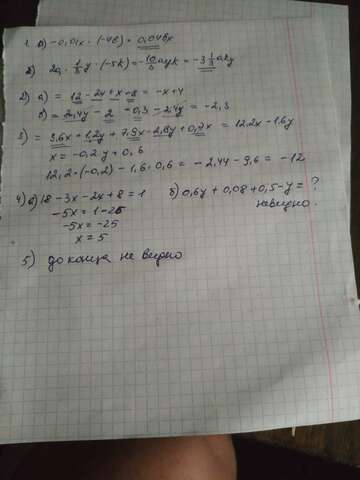 1. а) -0,01х · (-4в) = 0,04вх
в) 2а · 1/3 y · (-5k) = -10/3 ayk = -3 1/3 aky
2) а) = 12 - 24 + x + 8 = -x + 4
в) = 2,4y - 2 - 0,3 - 2,4y = -2,3
3) = 3,6x - 1,2y + 7,9x - 2,8y + 0,7x = 12.2x - 1.6y
x = -0,2 y = 0,6
12,2 · (-0,2) - 1,6 · 0,6 = -2,44 - 9,6 = -12
4) а) 18 - 3x - 2x + 8 = 1 б) 0,6y + 0,08 + 0,5 - y = ?
-5x = 1 - 26 невидно.
-5x = -25
x = 5
5) до конца не видно